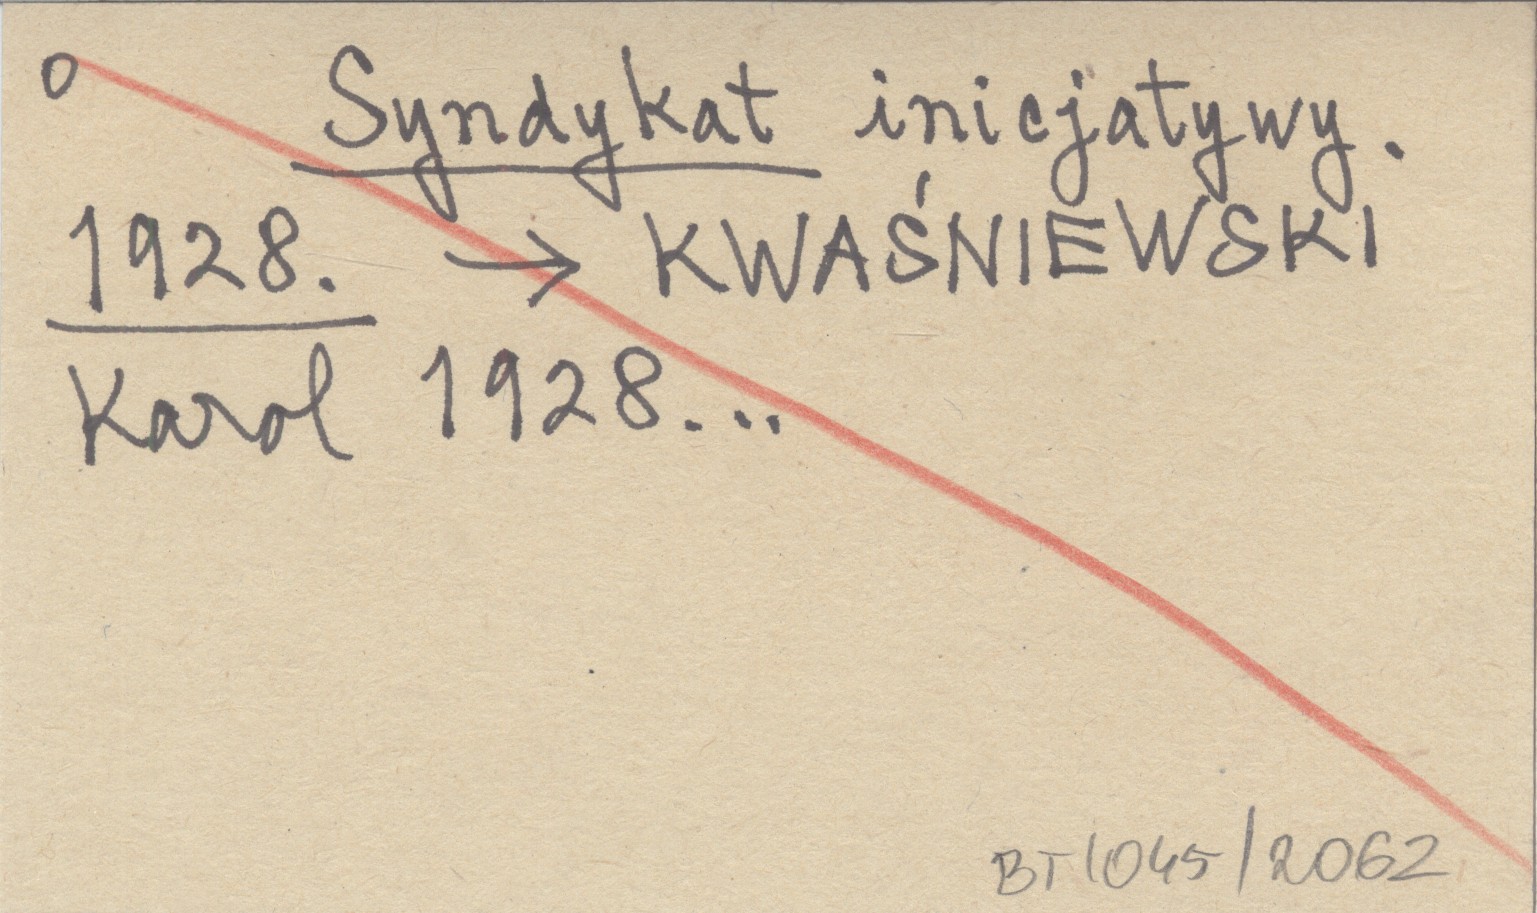 o Syndykat inicjatywy.
1928. → KWAŚNIEWSKI
Karol 1928...
BT1045/2062